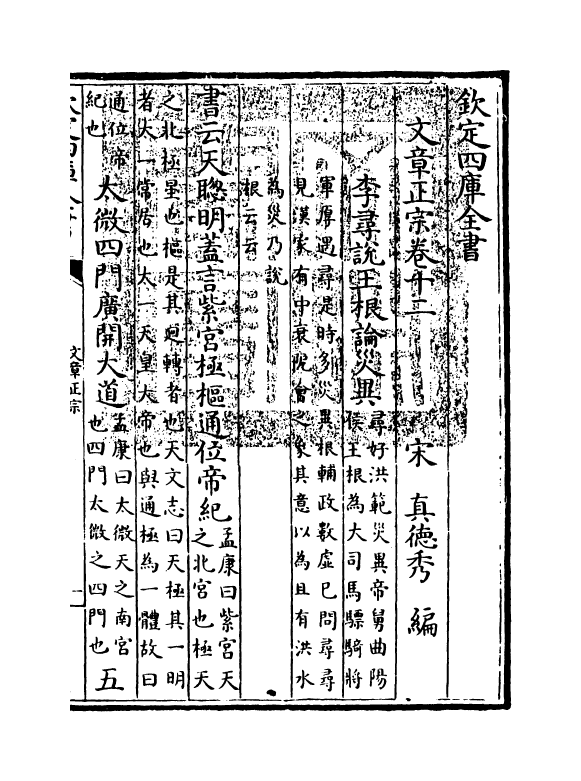 欽定四庫全書
文章正宗卷十二 宋 真德秀 編
李尋說王根論災異 尋好洪範災異帝舅曲陽
侯王根為大司馬驃騎將
軍厚遇尋是時多災異根輔政數虛巳問尋尋
見漢家有中衰阨會之象其意以為且有洪水
為災乃說
根云云
書云天聰明蓋言紫宮極樞通位帝紀 孟康曰紫宮天
之北宮也極天
之北極星也樞是其廻轉者也天文志曰天極其一明
者大一常居也大一天皇大帝也與通極為一體故曰
通位帝
紀也
太微四門廣開大道 孟康曰太微天之南宮
也四門太微之四門也
五
文章正宗
一